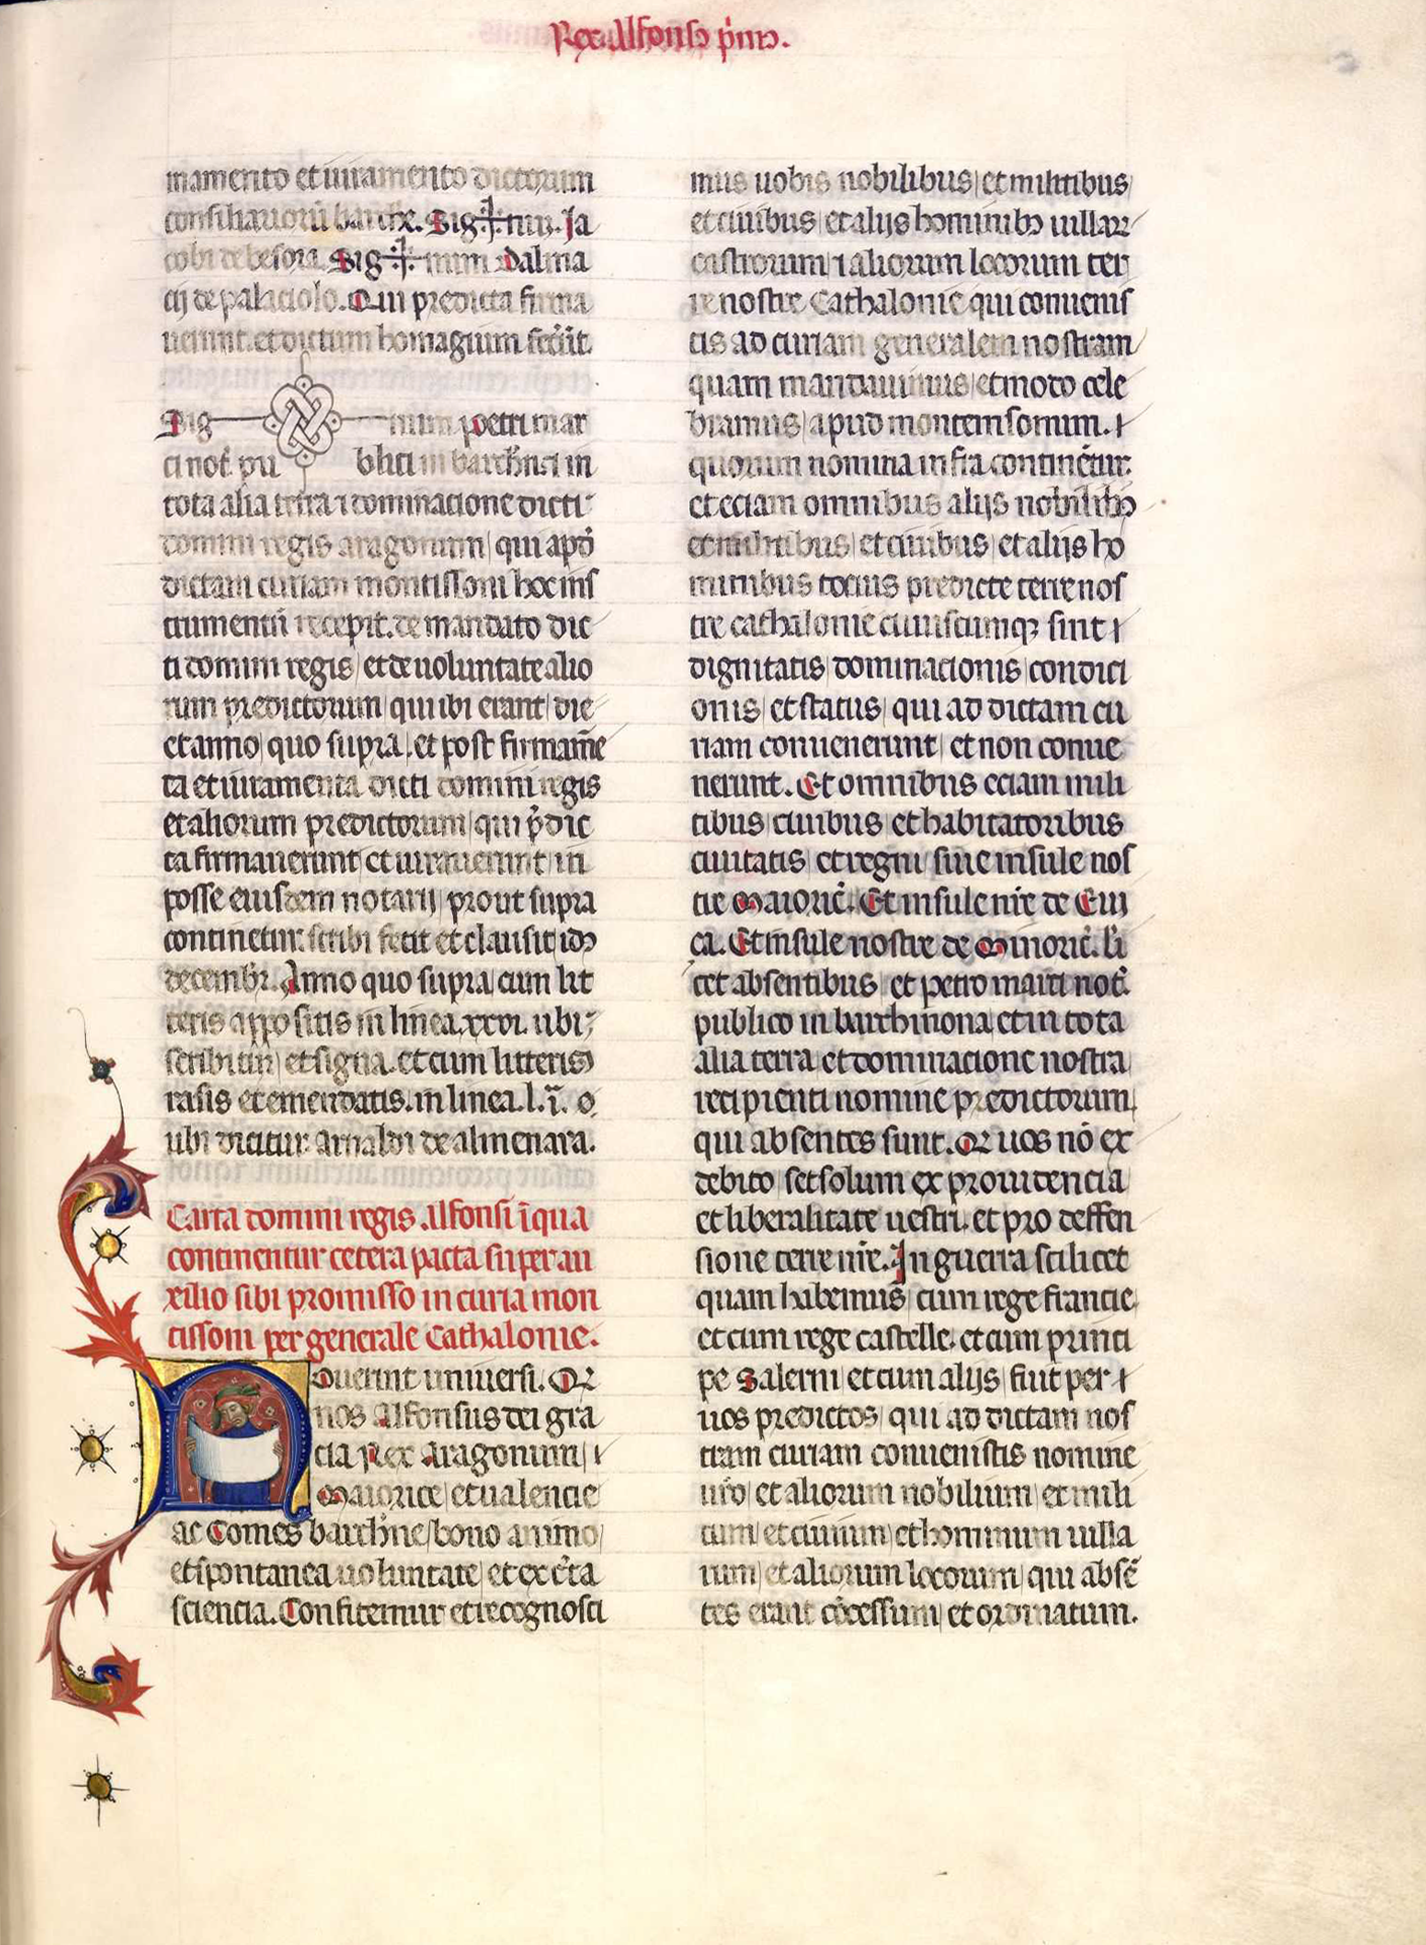 Rex Alfonso p̄mꝰ.
mamento et iuramento dictorum
consiliariorū barchn̄e. Sig✝num. Ja
cobi de besora. Sig✝num Dalma
cij de palaciolo. Qui predicta firma
uerunt. et dictum homagium fecer̄t.
Sig num petri mar
ci not̄. pu blici in barchn̄ et in
tota alia terra ⁊ dominacione dicti
domini regis aragonum qui apd̄
dictam curiam montissoni hoc ins
trumentū recepit. de mandato dic
ti domini regis et de uoluntate alio
rum predictorum qui ibi erant die
et anno quo supra. et post firmam̄e
ta et iuramenta dicti domini regis
et aliorum predictorum qui p̄dic
ta firmauerunt et iurauerunt in
posse eiusdem notarij prout supra
continetur. scribi fecit et clausit idꝰ
decembr̄. Anno quo supra cum lit
teris appositis in linea. xxvi. ubi
scribitur et signa. et cum litteris
rasis et emendatis. in linea. l. ij. o
ubi dicitur arnaldi de almenara.
Carta domini regis Alfonsi ī qua
continentur cetera pacta super au
xilio sibi promisso in curia mon
tissoni per generale Cathalonie.
Nouerint uniuersi. Qꝛ
nos Alfonsus dei gra
cia Rex Aragonum ⁊
Maiorice et ualencie
ac Comes barchn̄e bono animo
et spontanea uoluntate et ex c̄ta
sciencia. Confitemur et recognosci
mus uobis nobilibus et militibus
et ciuibus et alijs hominibꝰ uillarꝫ
castrorum ⁊ aliorum locorum ter
re nostre Cathalonie qui conuenis
tis ad curiam generalem nostram
quam mandauimus et modo cele
bramus apud montemsonum. ⁊
quorum nomina infra continētur.
et eciam omnibus alijs nobilibꝰ
et militibus et ciuibus et alijs ho
minibus tocius predicte terre nos
tre cathalonie cuiuscumqꝫ sint ⁊
dignitatis dominacionis condici
onis et status qui ad dictam cu
riam conuenerunt et non conue
nerunt. Et omnibus eciam mili
tibus ciuibus et habitatoribus
ciuitatis et regni siue insule nos
tre Maioric̄. Et insule nr̄e de Eui
ca. Et insule nostre de Minoric̄. li
cet absentibus et petro marci not̄.
publico in barchinona et in tota
alia terra et dominacione nostra
recipienti nomine predictorum
qui absentes sunt. Qꝛ uos nō ex
debito set solum ex prouidencia
et liberalitate uestri. et pro deffen
sione terre nr̄e. In guerra scilicet
quam habemus cum rege francie
et cum rege castelle. et cum princi
pe Salerni et cum alijs fuit per ⁊
uos predictos qui ad dictam nos
tram curiam conuenistis nomine
ur̄o et aliorum nobilium et mili
tum et ciuium et hominum uilla
rum et aliorum locorum qui absē
tes erant cōcessum et ordinatum.